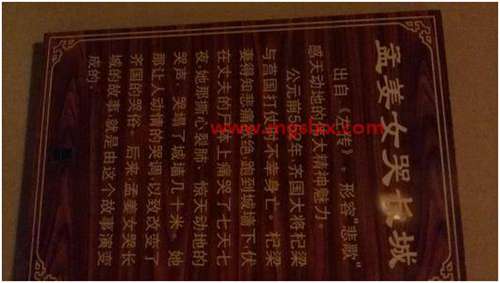 孟姜女哭长城
出自《左传》，形容“悲歌”
感天动地的巨大精神魅力。
公元前 年 齐国大将杞梁
与莒国打仗时不幸身亡。杞梁
妻得知悲痛欲绝，跑到城墙下，伏
在丈夫的尸体上痛哭了七天七
夜，她那撕心裂肺、惊天动地的
哭声，哭塌了城墙几十米。她
那让人动情的哭调以致改变了
齐国的哭俗。后来孟姜女哭长
城的故事就是由这个故事演变
成的。